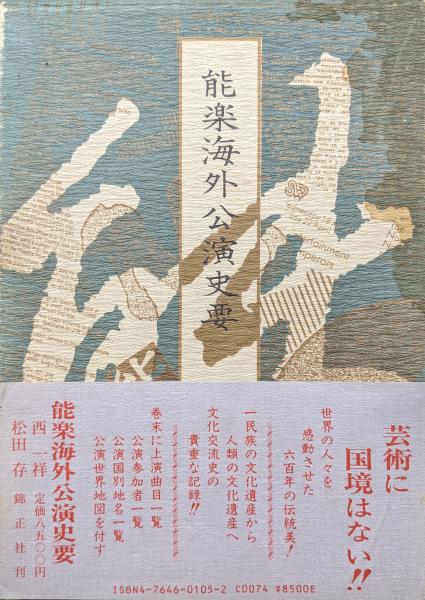 能楽海外公演史要
芸術に
国境はない!!
世界の人々を
感動させた
六百年の伝統美!
一民族の文化遺産から
人類の文化遺産へ
文化交流史の
貴重な記録!!
巻末に上演曲目一覧
公演参加者一覧
公演国別地名一覧
公演世界地図を付す
能楽海外公演史要
西 一祥
松田 存
定価八五〇〇円
錦正社刊
ISBN4-7646-0105-2 C0074 ¥8500E